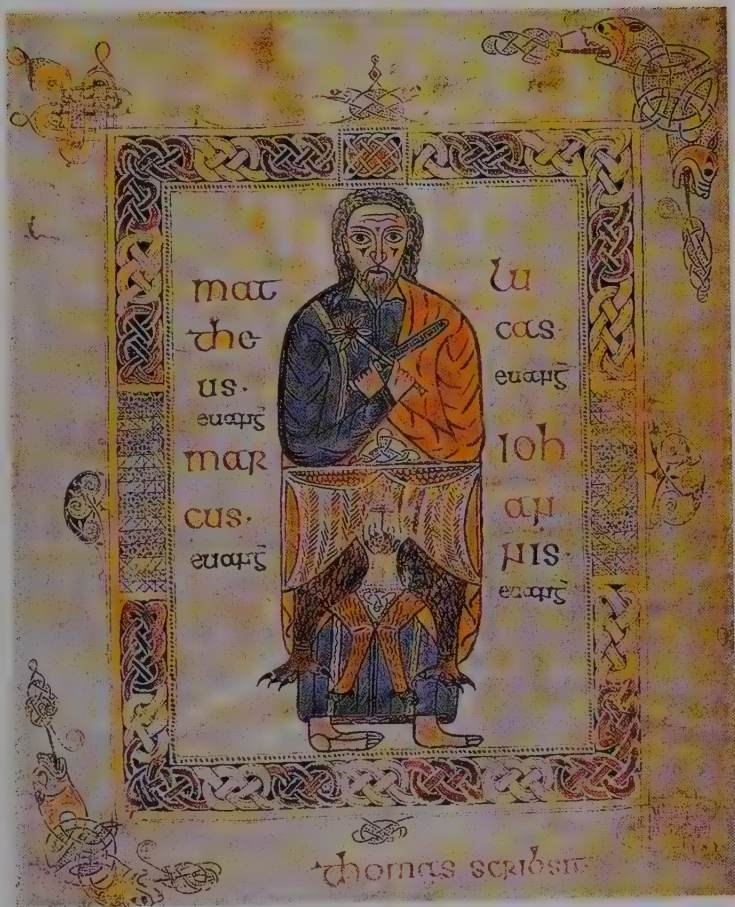 mat
the
us·
euang̅
mar
cus·
euang̅
lu
cas
euang̅
Ioh
an
nis·
euang̅
thomas scribsit